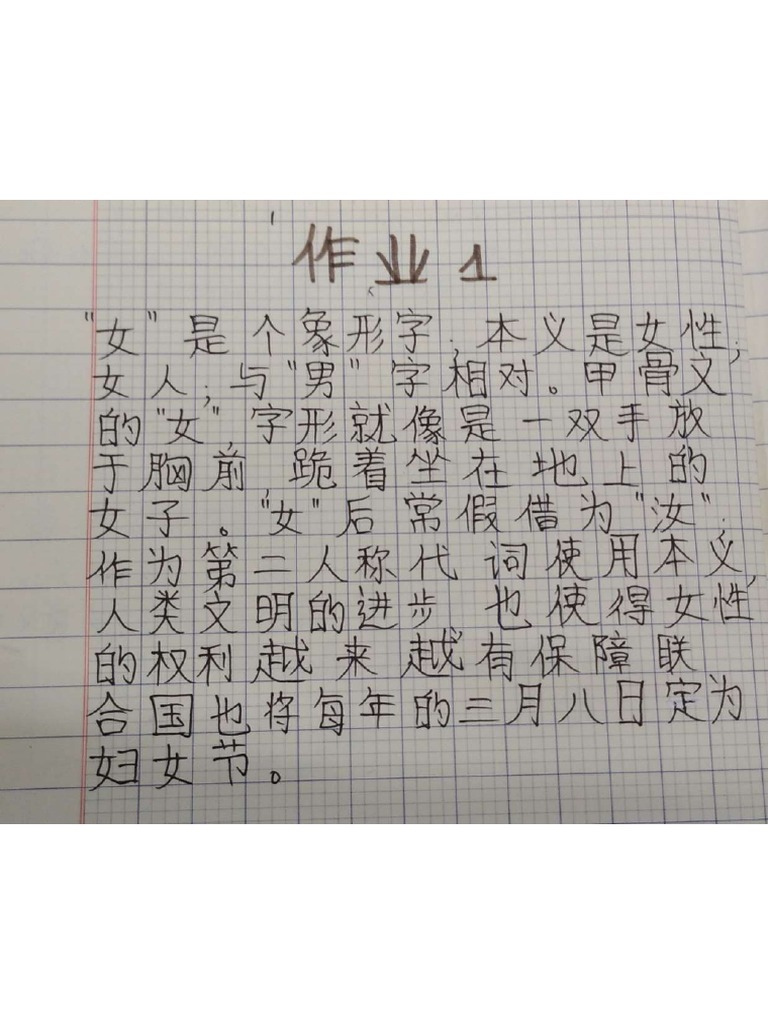 作业1
"女"是个象形字,本义是女性,
女人,与"男"字相对。甲骨文
的"女",字形就像是一双手放
于胸前,跪着坐在地上的
女子。"女"后常假借为"汝",
作为第二人称代词使用本义,
人类文明的进步,也使得女性
的权利越来越有保障联
合国也将每年的三月八日定为
妇女节。